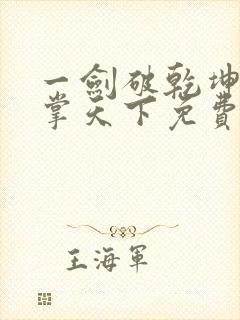 一劍破乾坤
掌天下免費
王海軍